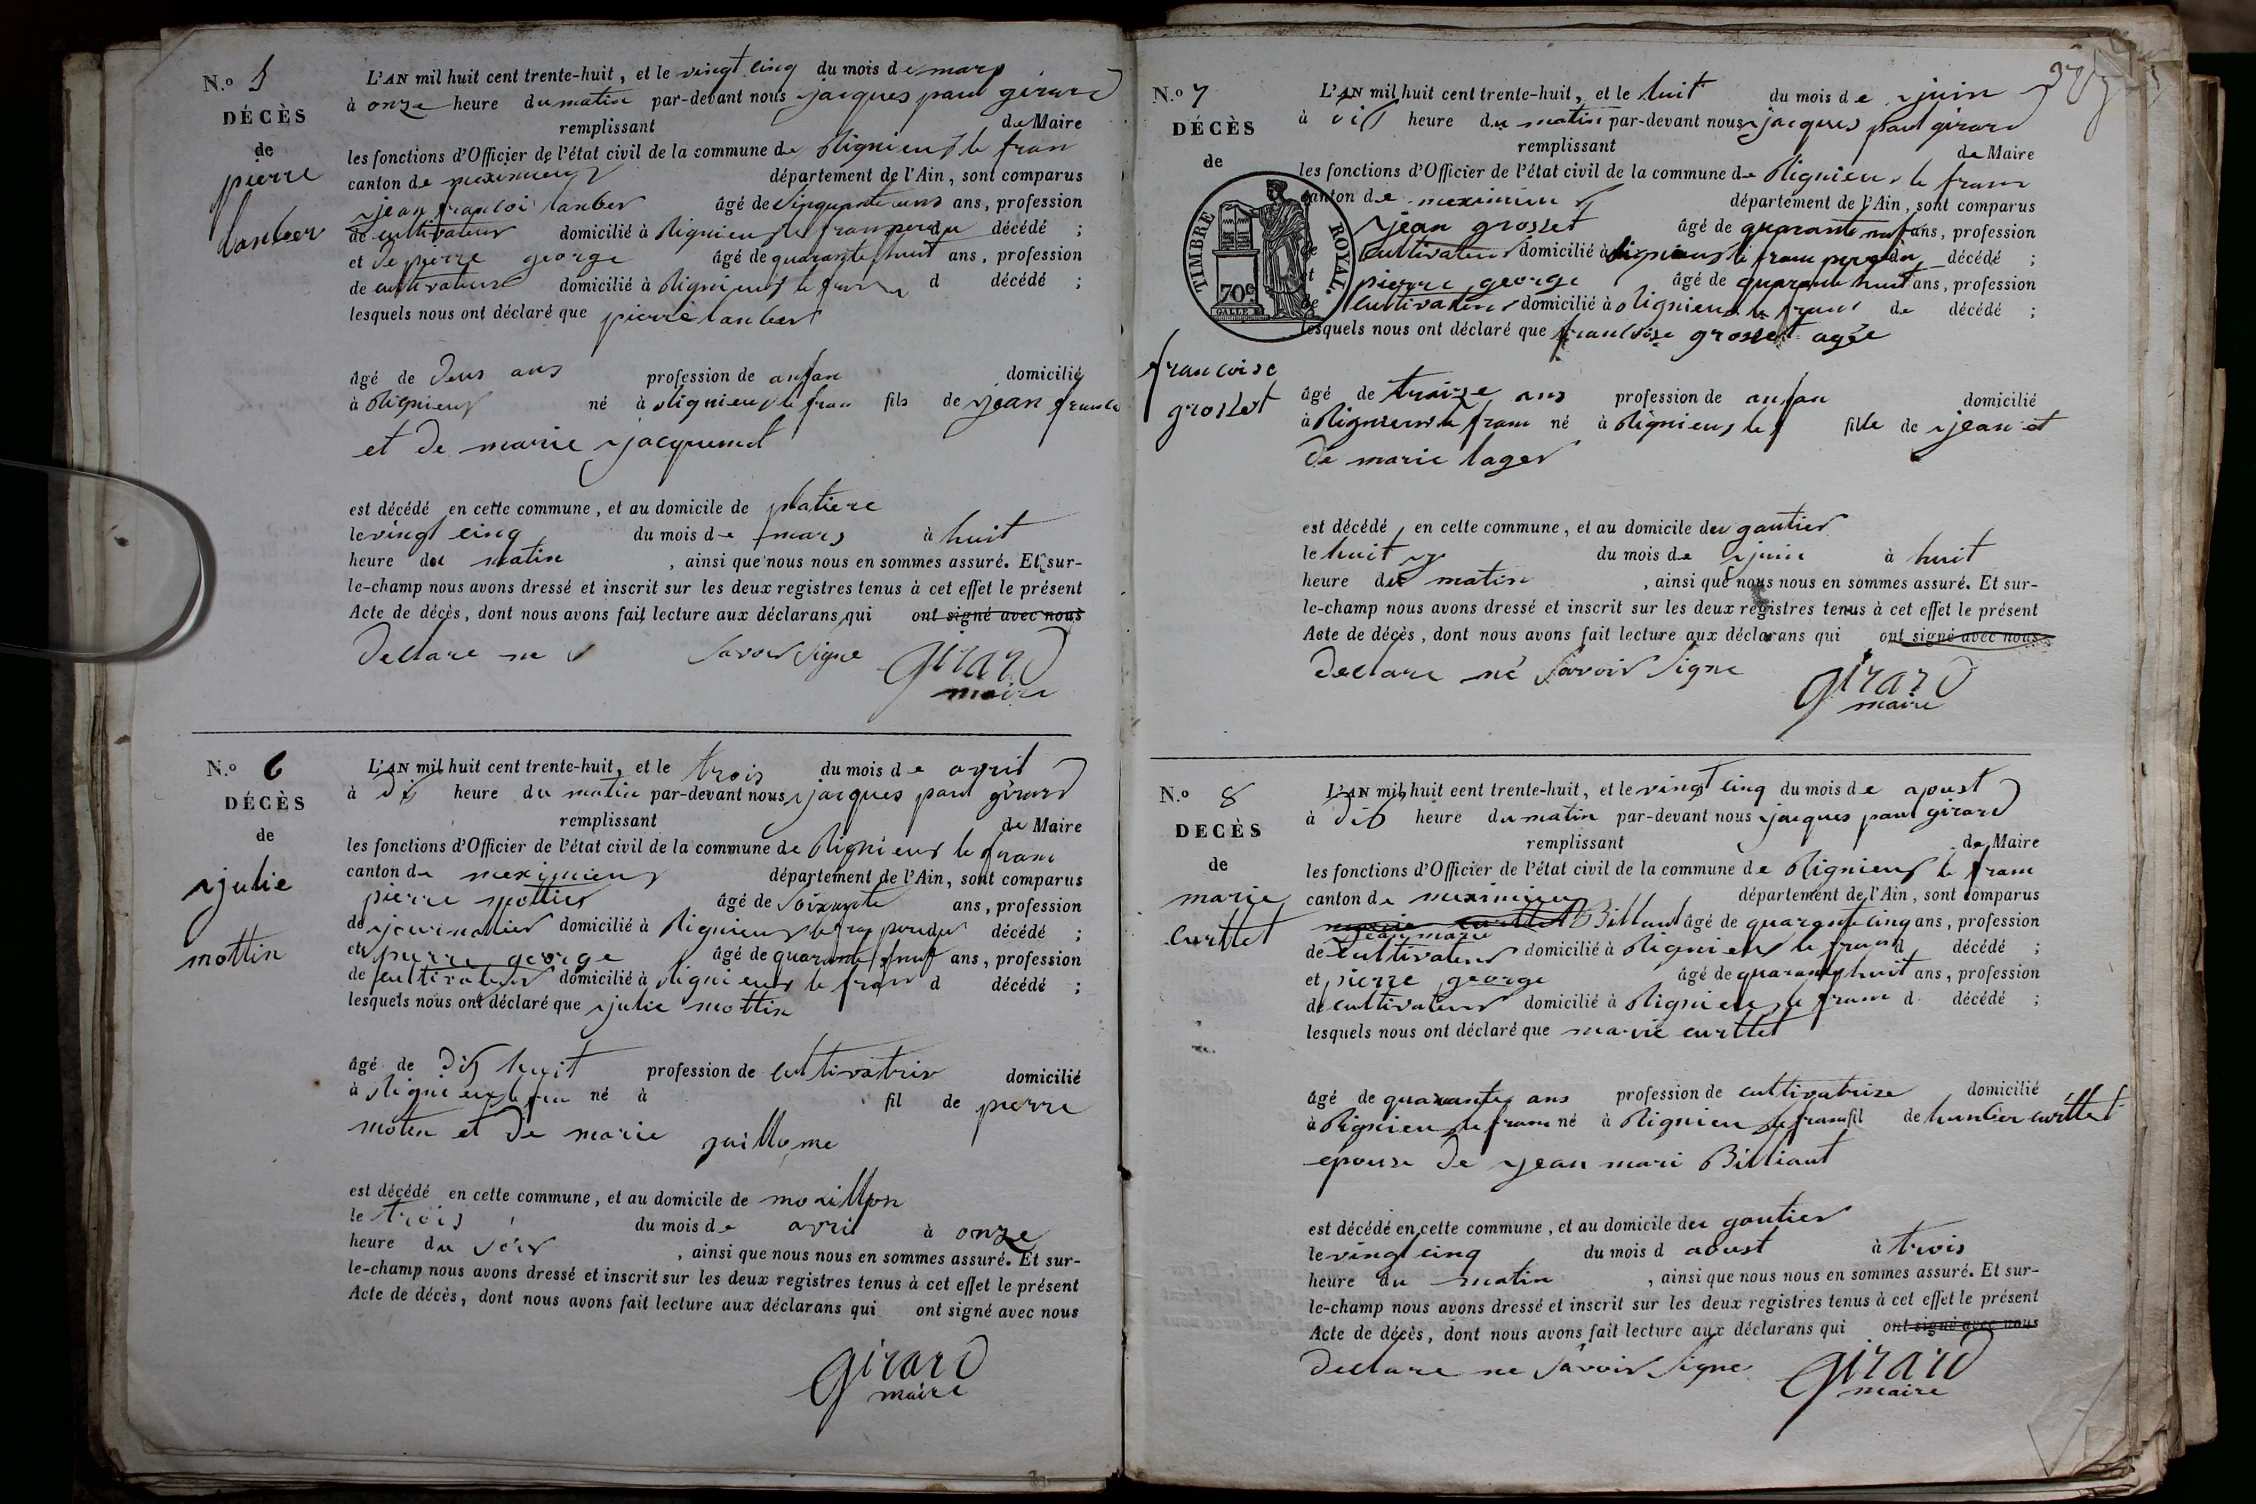 N.o 5
DÉCÈS
de
pierre
lanber
L'AN mil huit cent trente-huit, et le vingt cinq du mois de mars
à onze heure du matin par-devant nous jacques paul girard
remplissant de Maire
les fonctions d'Officier de l'état civil de la commune de Rignieux le fran
canton de meximieux département de l'Ain, sont comparus
jean francoi lanber âgé de cinquante ans, profession
de cultivateur domicilié à Rignieux le fran perdu décédé ;
et de pierre george âgé de quarante huit ans, profession
de cultivateur domicilié à Rignieux le fran d décédé ;
lesquels nous ont déclaré que pierre lanber
âgé de deux ans profession de anfan domicilié
à Rignieux né à Rignieux le fran fils de jean francoi
et de marie jacquemet
est décédé en cette commune, et au domicile de platiere
le vingt cinq du mois de mars à huit
heure du matin, ainsi que nous nous en sommes assuré. Et sur-
le-champ nous avons dressé et inscrit sur les deux registres tenus à cet effet le présent
Acte de décès, dont nous avons fait lecture aux déclarans qui ont signé avec nous
declare ne savoir signe girard
maire
N.o 6
DÉCÈS
de
julie
mottin
L'AN mil huit cent trente-huit, et le trois du mois de avril
à dix heure du matin par-devant nous jacques paul girard
remplissant de Maire
les fonctions d'Officier de l'état civil de la commune de Rignieux le franc
canton de meximieux département de l'Ain, sont comparus
pierre mottin âgé de soixante ans, profession
de journalier domicilié à Rignieux le fran perdu décédé ;
et pierre george âgé de quarante huit ans, profession
de cultivateur domicilié à Rignieux le fran d décédé ;
lesquels nous ont déclaré que julie mottin
âgé de dix huit profession de cultivatrix domicilié
à Rignieux le fran né à fil de pierre
moten et de marie guillome
est décédé en cette commune, et au domicile de morillon
le trois du mois de avril à onze
heure du soir, ainsi que nous nous en sommes assuré. Et sur-
le-champ nous avons dressé et inscrit sur les deux registres tenus à cet effet le présent
Acte de décès, dont nous avons fait lecture aux déclarans qui ont signé avec nous
girard
maire
N.o 7
DÉCÈS
de
TIMBRE ROYAL.
70c
francoise
grosset
L'AN mil huit cent trente-huit, et le huit du mois de juin
à dix heure du matin par-devant nous jacques paul girard
remplissant de Maire
les fonctions d'Officier de l'état civil de la commune de Rignieux le franc
canton de meximieux département de l'Ain, sont comparus
jean grosset âgé de quarante neuf ans, profession
de cultivateur domicilié à Rignieux le franc perdu décédé ;
et pierre george âgé de quarante huit ans, profession
de cultivateur domicilié à Rignieux le franc de décédé ;
lesquels nous ont déclaré que francoise grosset agée
âgé de traize ans profession de anfan domicilié
à Rignieux le franc né à Rignieux le f fille de jean et
de marie lager
est décédé en cette commune, et au domicile du gautier
le huit du mois de juin à huit
heure du matin, ainsi que nous nous en sommes assuré. Et sur-
le-champ nous avons dressé et inscrit sur les deux registres tenus à cet effet le présent
Acte de décès, dont nous avons fait lecture aux déclarans qui ont signé avec nous
declare né savoir signe girard
maire
N.o 8
DECÈS
de
marie
curttet
L'AN mil huit cent trente-huit, et le vingt cinq du mois de aoust
à dix heure du matin par-devant nous jacques paul girard
remplissant de Maire
les fonctions d'Officier de l'état civil de la commune de Rignieux le franc
canton de meximieux département de l'Ain, sont comparus
marie curttet Billaut âgé de quarante cinq ans, profession
jean marie
de cultivateur domicilié à Rignieux le franc d décédé ;
et pierre george âgé de quarante huit ans, profession
de cultivateur domicilié à Rignieux le franc d décédé ;
lesquels nous ont déclaré que marie curttet
âgé de quarante ans profession de cultivatrise domicilié
à Rignieux le franc né à Rignieux le franc fil de hunber curttet
epouse de jean mari Billiaut
est décédé en cette commune, et au domicile du gautier
le vingt cinq du mois d aoust à trois
heure du matin, ainsi que nous nous en sommes assuré. Et sur-
le-champ nous avons dressé et inscrit sur les deux registres tenus à cet effet le présent
Acte de décès, dont nous avons fait lecture aux déclarans qui ont signé avec nous
declare ne savoir signe girard
maire